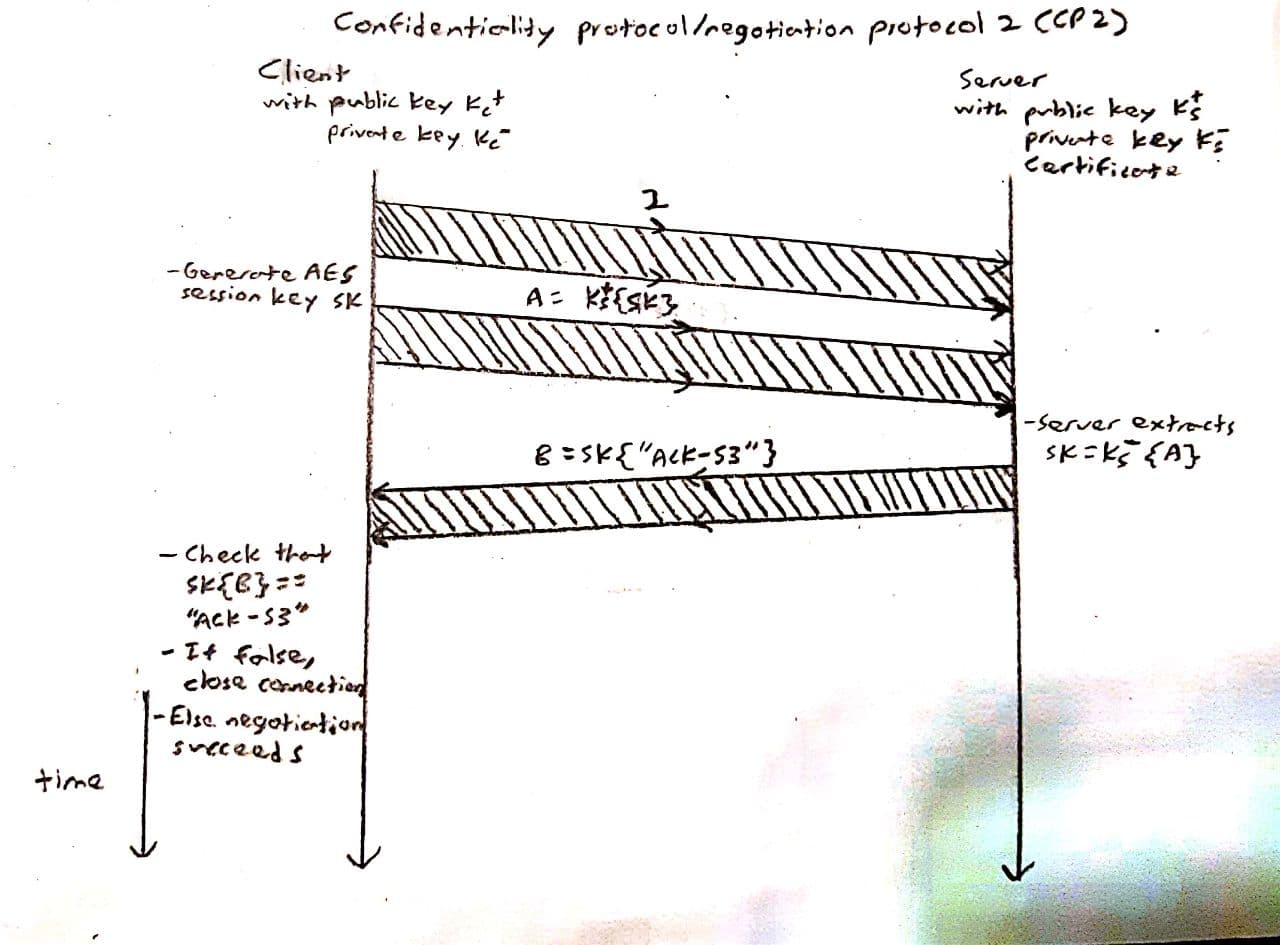 Confidentiality protocol/negotiation protocol 2 (CP2)
Client
with public key Kc+
private key Kc-
Server
with public key Ks+
private key Ks-
Certificate
2
-Generate AES
session key SK
A = Ks+{SK}
-Server extracts
SK=Ks-{A}
B=SK{"Ack-S3"}
- Check that
SK{B}==
"Ack-S3"
- If false,
close connection
-Else negotiation
succeeds
time